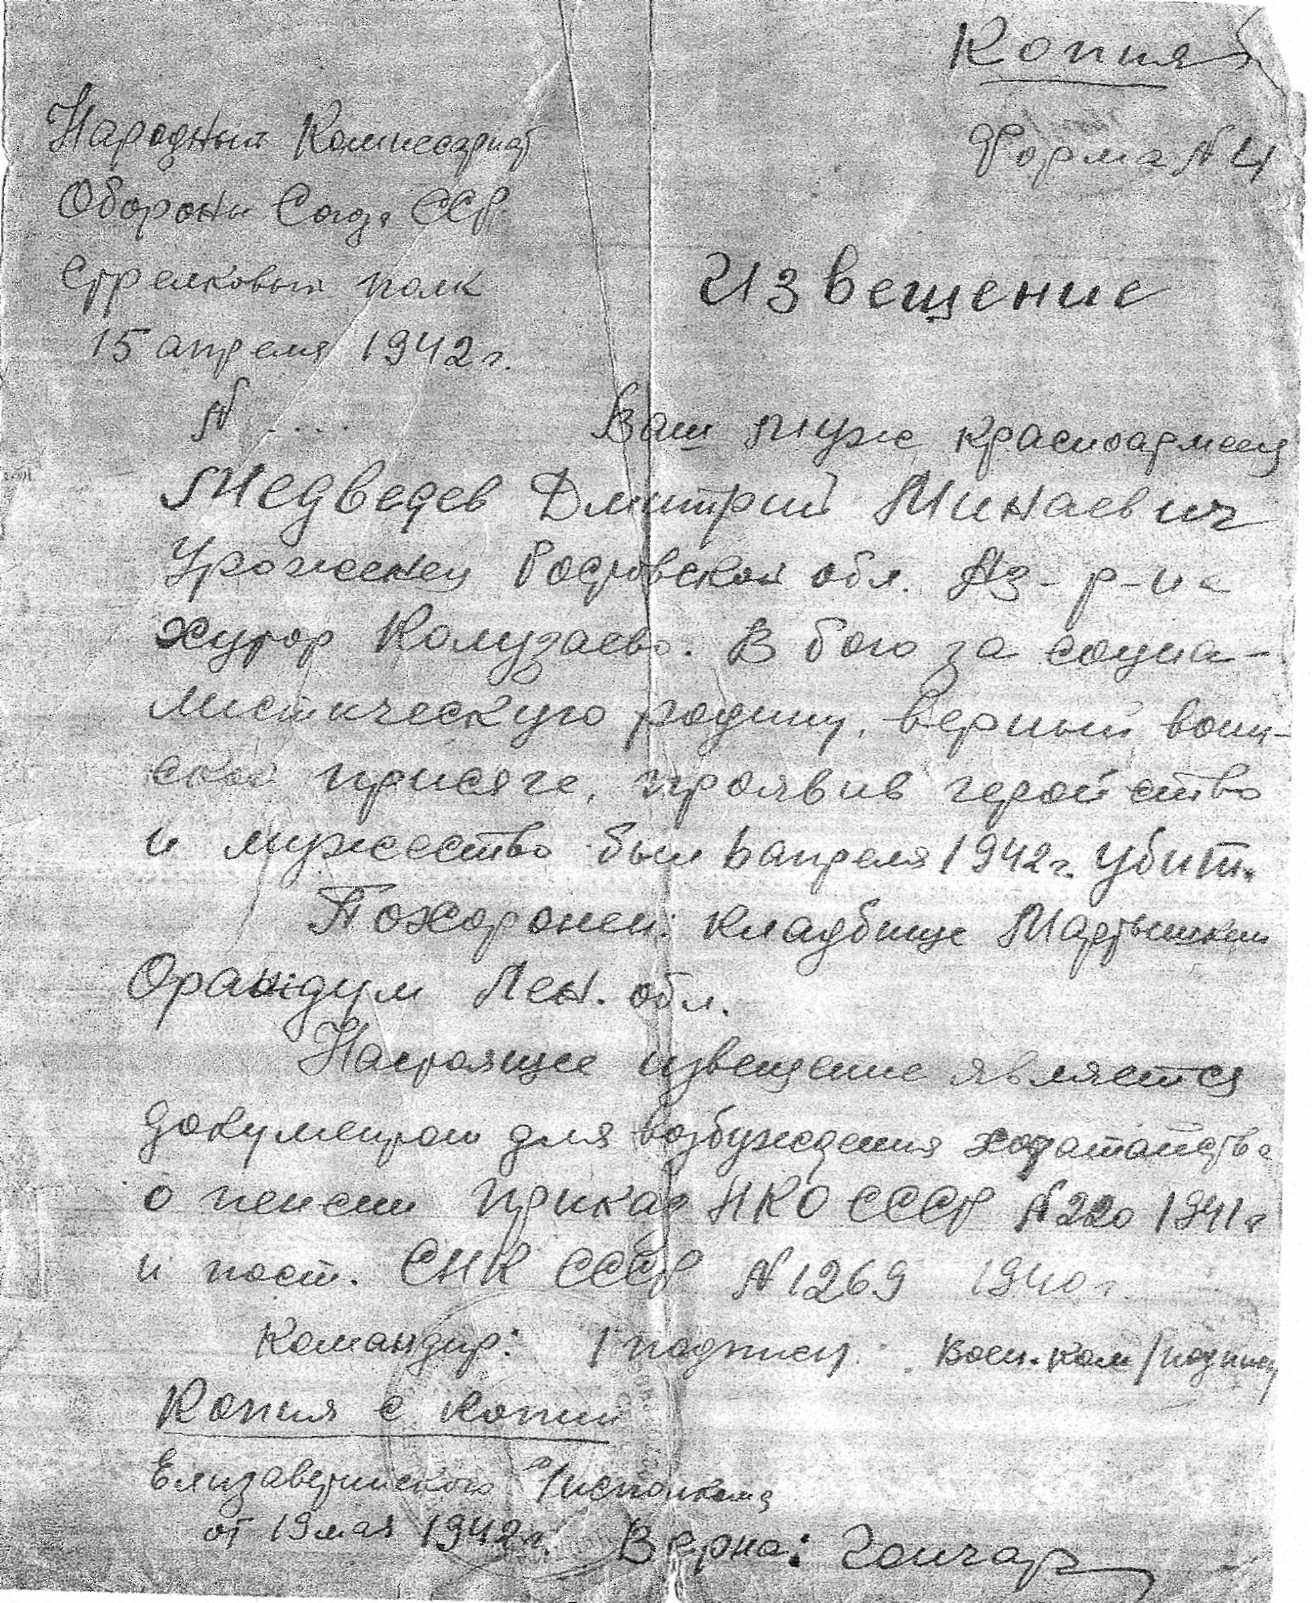 Копия
Форма № 4
Народный Комиссариат
Обороны Союза ССР
Стрелковый полк
15 апреля 1942 г.
№ ....
Извещение
Ваш муж красноармеец
Медведев Дмитрий Минаевич
Уроженец Ростовской обл. Аз- р-на
хутор Колузаево. В бою за социа-
листическую родину, верный воин-
ской присяге, проявив геройство
и мужество был 6 апреля 1942 г. убит.
Похоронен: кладбище Мартышкин
Ораниидум Лен. обл.
Настоящее извещение является
документом для возбуждения ходатайства
о пенсии приказ НКО СССР № 220 1941 г
и пост. СНК СССР № 1269 1940 г.
Командир: /подпись Воен. ком /подпись
Копия с копии
Елизаветинского Исполкома
от 19 мая 1942 г. Верна: Гончар